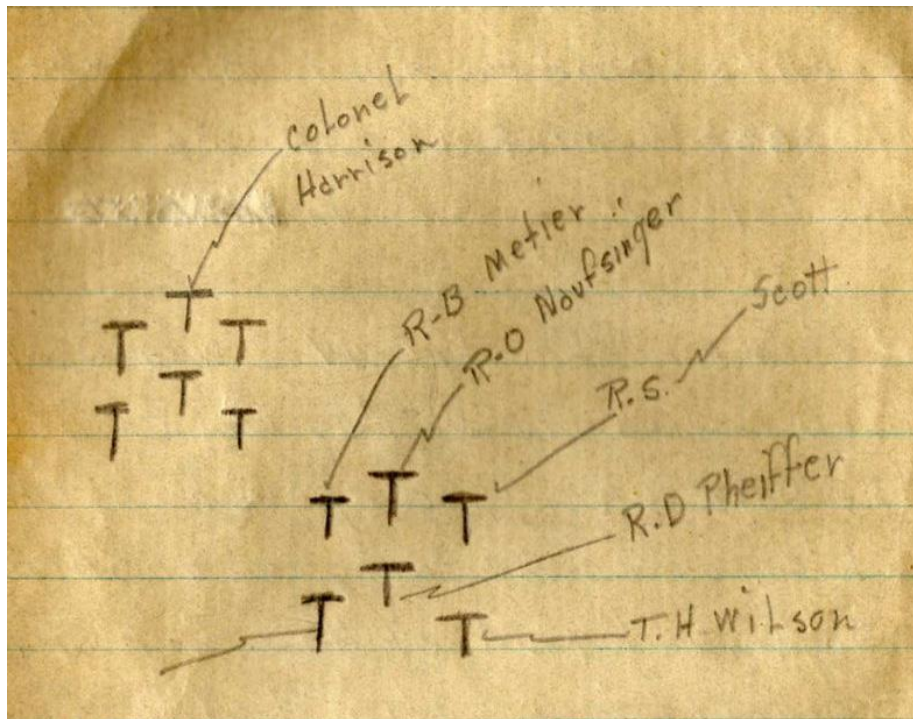 Colonel
Harrison
R-B Metier
R-O Naufsinger
R.S. Scott
R.D Pheiffer
T.H Wilson
T
T
T
T
T
T
T
T
T
T
T
T